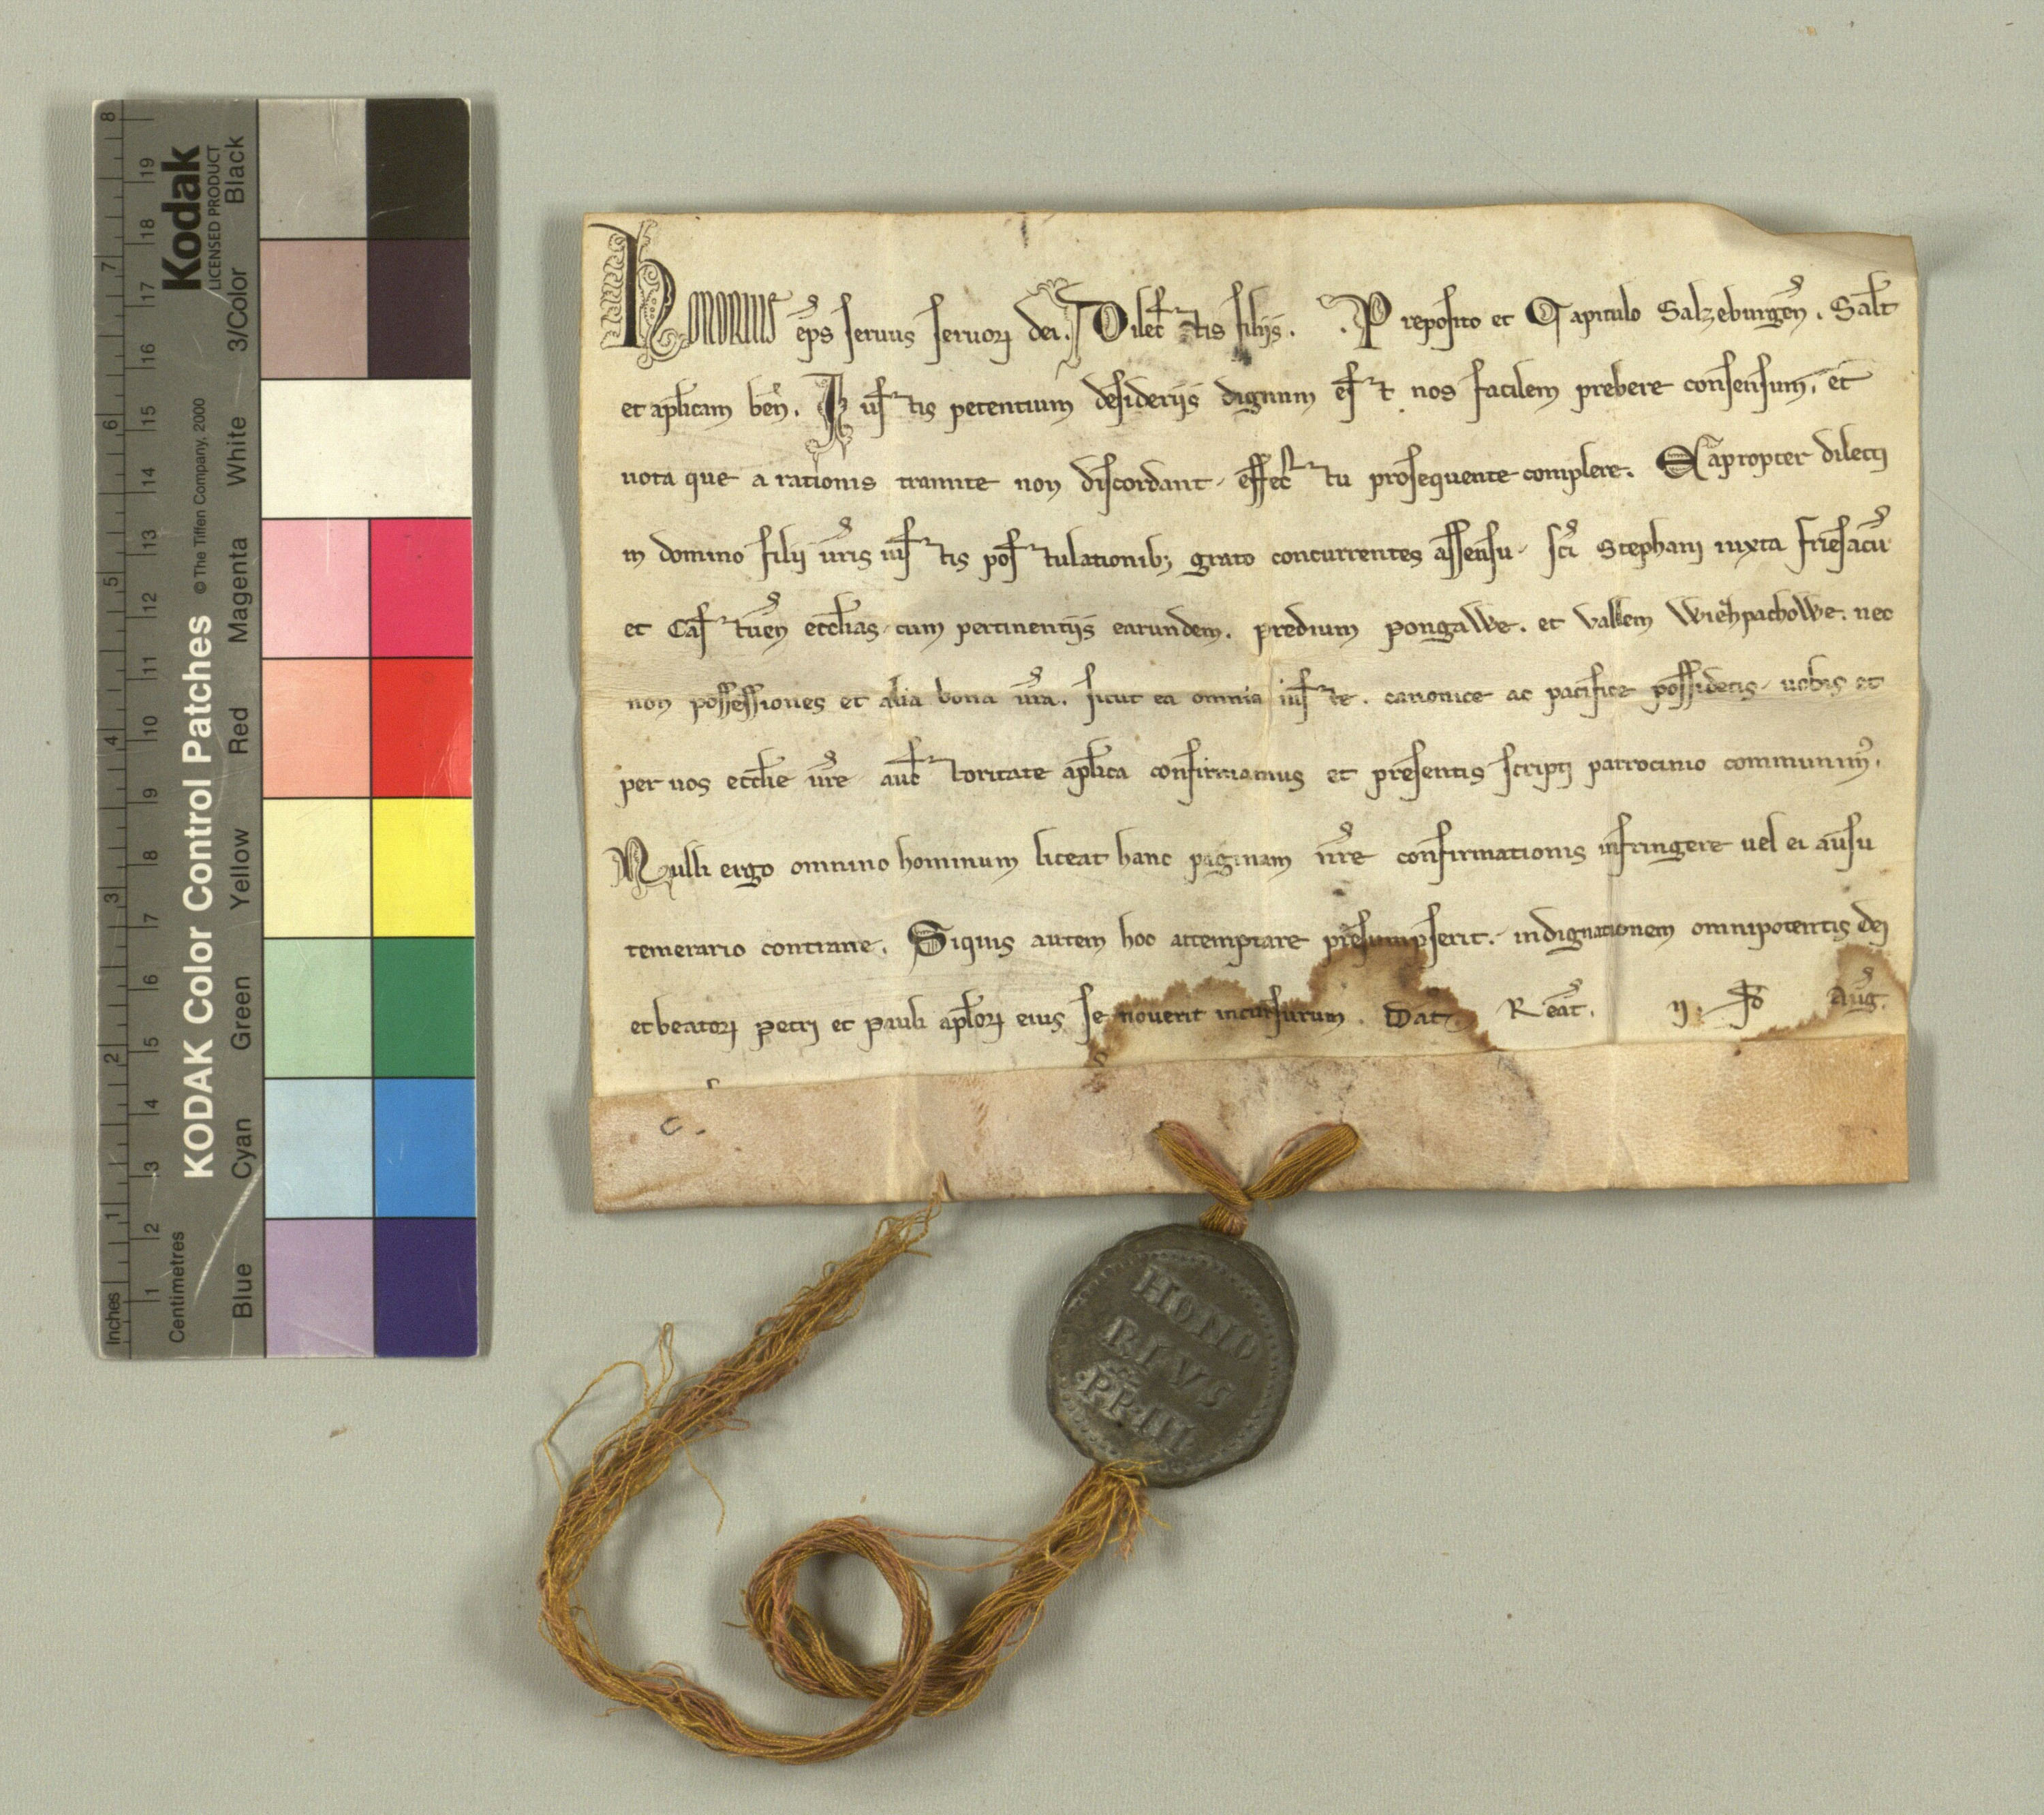 KODAK Color Control Patches © The Tiffen Company, 2000
Kodak
LICENSED PRODUCT
Inches 1 2 3 4 5 6 7 8
Centimetres 1 2 3 4 5 6 7 8 9 10 11 12 13 14 15 16 17 18 19
Blue Cyan Green Yellow Red Magenta White 3/Color Black
Honorius ep̄s seruus seruoꝝ dei. Dilectis filiis. . Preposito et Capitulo Salzeburgen̄. Salt̄
et ap̄licam ben̄. Iustis petentium desideriis dignum est nos facilem prebere consensum, et
uota que a rationis tramite non discordant, effectu prosequente complere. Eapropter dilecti
in domino filii ur̄is iustis postulationibꝫ grato concurrentes assensu, sc̄i Stephani iuxta Friesacū
et Castuen̄ ecclīas, cum pertinentiis earundem. predium pongawe. et vallem wiehpachowe. nec
non possessiones et alia bona ur̄a. sicut ea omnia iuste. canonice ac pacifice possidetis, uobis et
per uos ecclīe ur̄e auctoritate ap̄lica confirmamus et presentis scripti patrocinio communim᷒.
Nulli ergo omnino hominum liceat hanc paginam nr̄e confirmationis infringere uel ei ausu
temerario contraire. Siquis autem hoc attemptare presumpserit, indignationem omnipotentis dei
et beatoꝝ Petri et Pauli ap̄loꝝ eius se nouerit incursurum. Dat̄ Reat̄. ij. Id̄ Auḡ.
HONO
RIVS
PP III